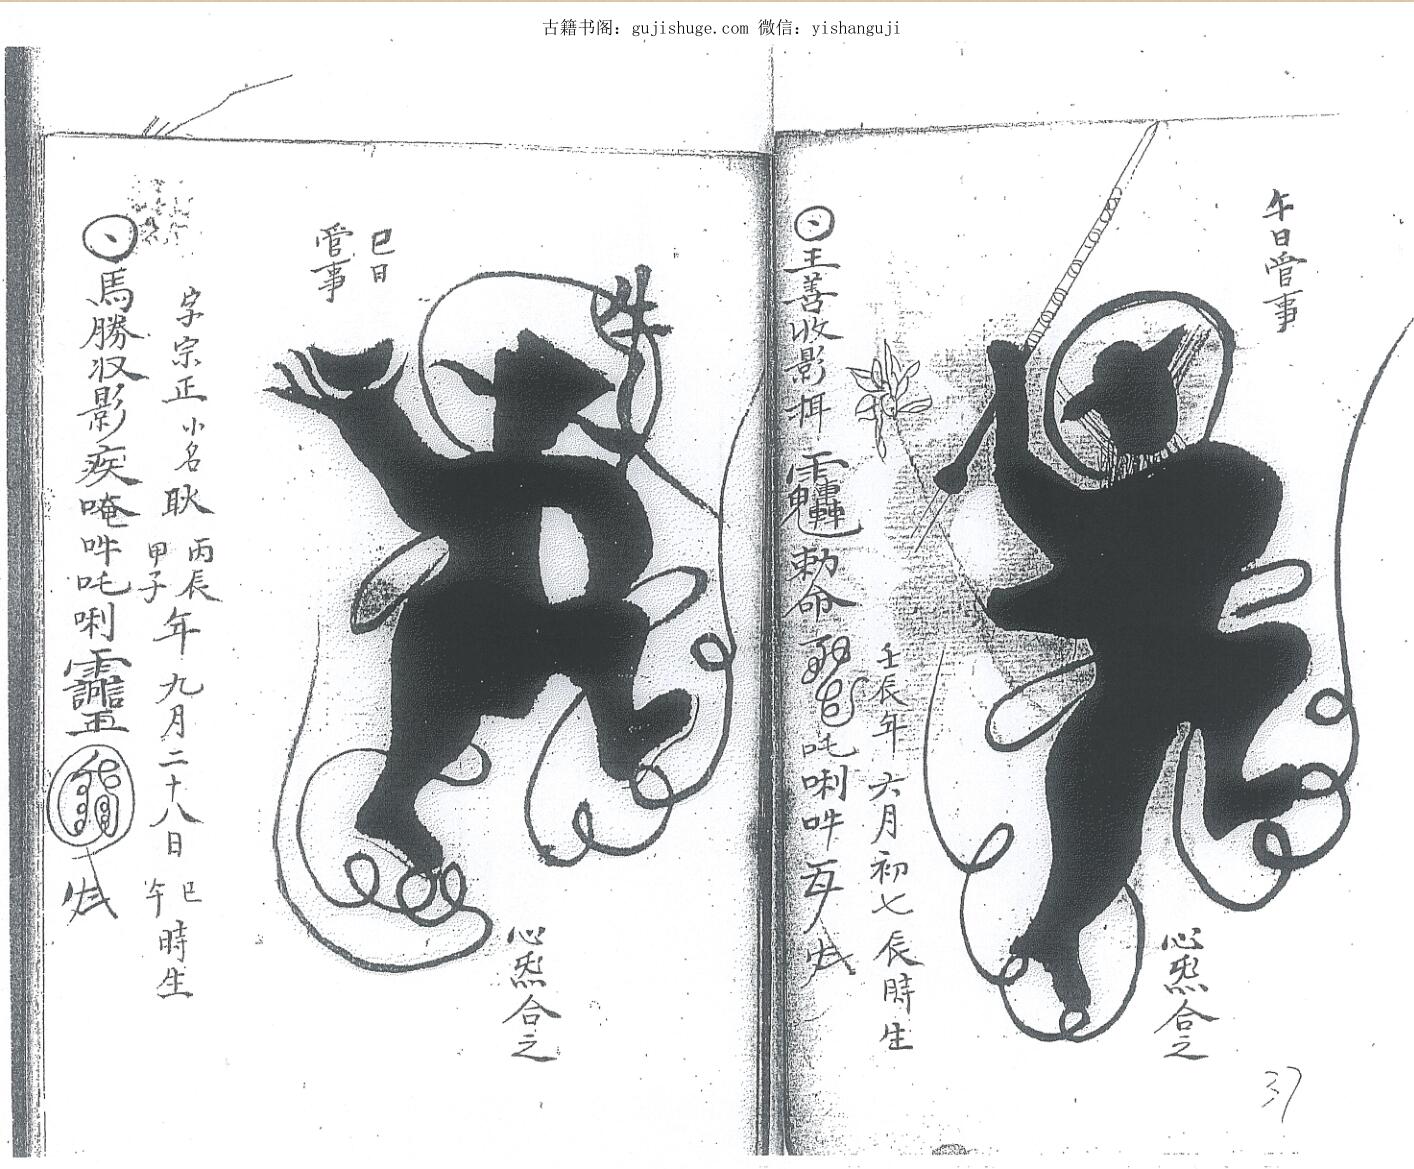 古籍书阁：gujishuge.com 微信：yishanguji
午日管事
心炁合之
壬辰年六月初七辰時生
王善收影捤
勅命
吒唎吽
巳日
管事
心炁合之
字宗正小名耿丙辰甲子年九月二十八日巳午時生
馬勝收影疾唵吽吒唎
37